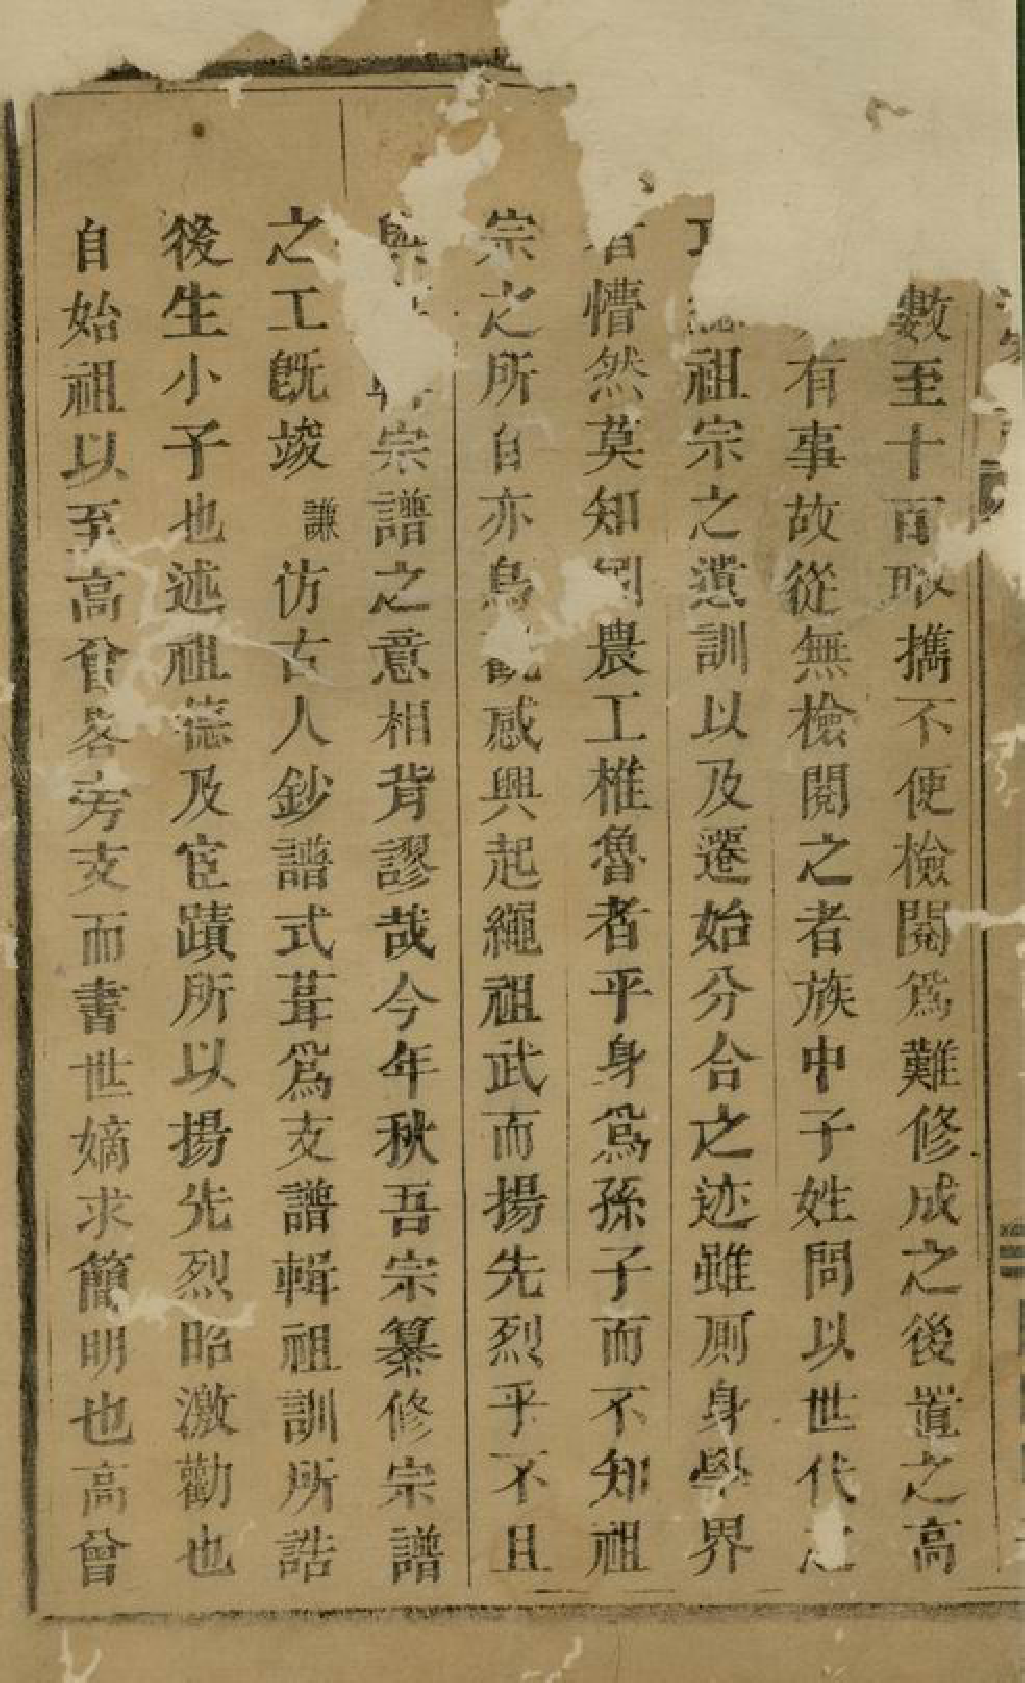 數至十百取攜不便檢閱爲難修成之後置之高
有事故從無檢閱之者族中子姓問以世代之
祖宗之遺訓以及遷始分合之迹雖厠身學界
者懵然莫知則農工椎魯者乎身爲孫子而不知祖
宗之所自亦烏能感興起繩祖武而揚先烈乎不且
與 宗譜之意相背謬哉今年秋吾宗纂修宗譜
之工旣竣謙仿古人鈔譜式葺爲支譜輯祖訓所誥
後生小子也述祖德及宦蹟所以揚先烈昭激勸也
自始祖以至高曾畧旁支而書世嫡求簡明也高曾